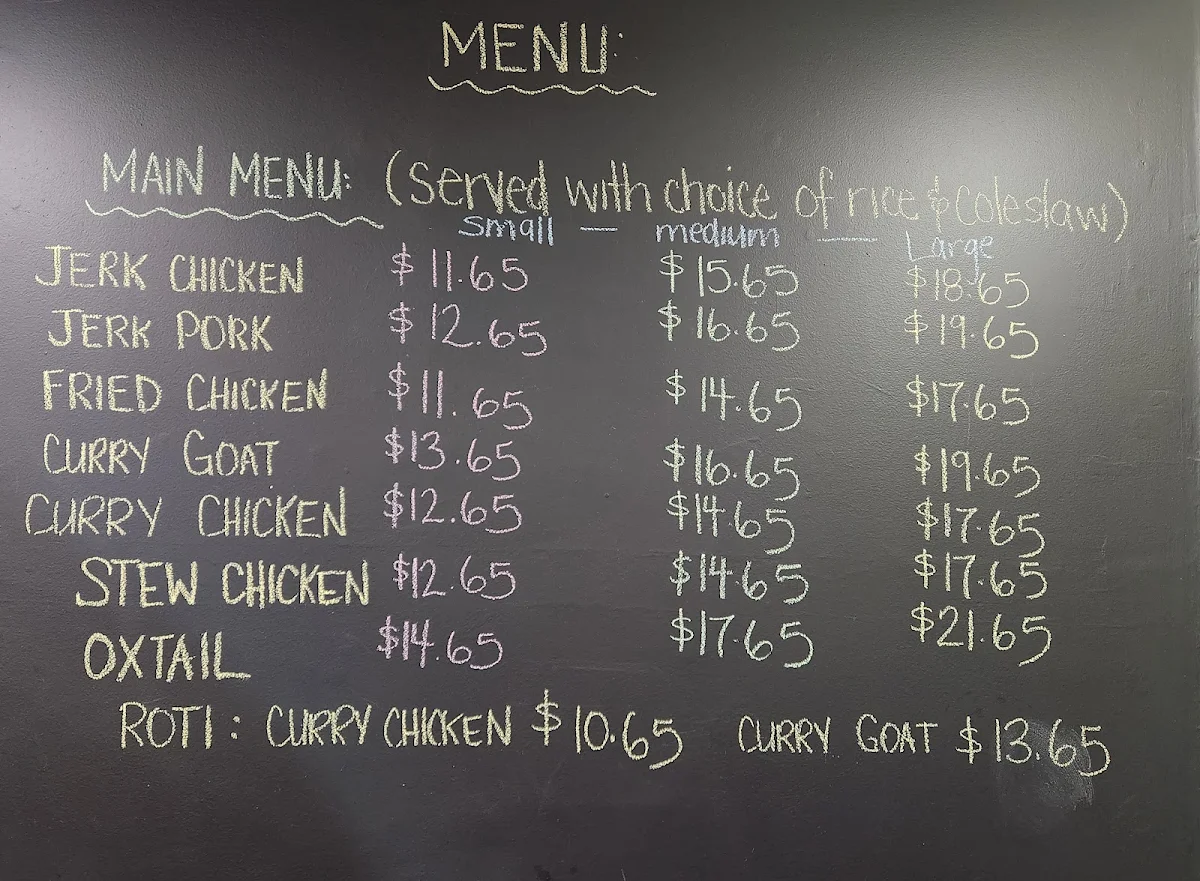 MENU:
MAIN MENU: (Served with choice of rice & Coleslaw)
Small — medium — Large
JERK CHICKEN $11.65 $15.65 $18.65
JERK PORK $12.65 $16.65 $19.65
FRIED CHICKEN $11.65 $14.65 $17.65
CURRY GOAT $13.65 $16.65 $19.65
CURRY CHICKEN $12.65 $14.65 $17.65
STEW CHICKEN $12.65 $14.65 $17.65
OXTAIL $14.65 $17.65 $21.65
ROTI: CURRY CHICKEN $10.65 CURRY GOAT $13.65